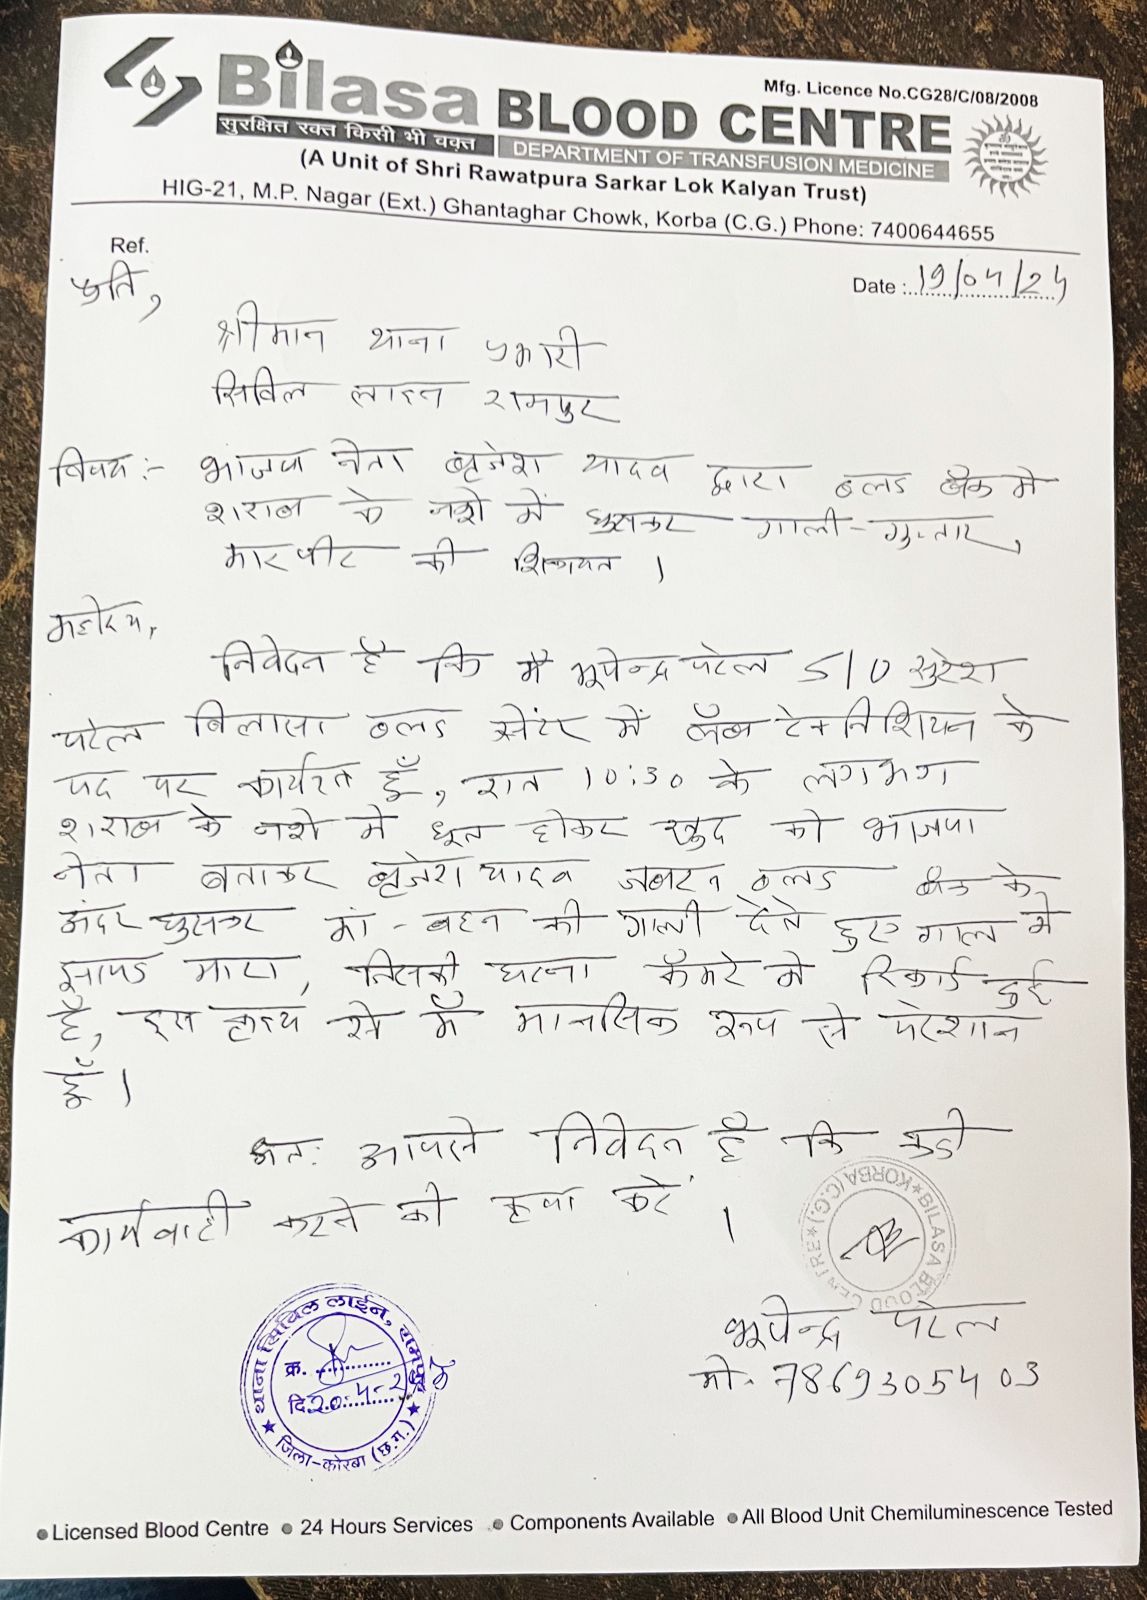 Mfg. Licence No.CG28/C/08/2008
Bilasa BLOOD CENTRE
सुरक्षित रक्त किसी भी वक़्त
DEPARTMENT OF TRANSFUSION MEDICINE
(A Unit of Shri Rawatpura Sarkar Lok Kalyan Trust)
HIG-21, M.P. Nagar (Ext.) Ghantaghar Chowk, Korba (C.G.) Phone: 7400644655
Ref.
Date : 19/04/24
प्रति,
श्रीमान थाना प्रभारी
सिविल लाइन रामपुर
विषय :- भाजपा नेता बृजेश यादव द्वारा ब्लड बैंक मे
शराब के नशे में घुसकर गाली-गुफ्तार,
मारपीट की शिकायत ।
महोदय,
निवेदन है कि मैं भूपेन्द्र पटेल S/O सुरेश
पटेल बिलासा ब्लड सेंटर में लॅब टेक्निशियन के
पद पर कार्यरत हूँ, रात 10:30 के लगभग
शराब के नशे मे धूत होकर खुद को भाजपा
नेता बताकर बृजेश यादव जबरन ब्लड बैंक के
अंदर घुसकर मां-बहन की गाली देते हुए गाल मे
झापड मारा, जिसकी घटना कॅमरे मे रिकार्ड हुई
है, इस कृत्य से मैं मानसिक रूप से परेशान
हूँ ।
अतः आपसे निवेदन है कि कडी
कार्यवाही करने की कृपा करें ।
BILASA BLOOD CENTRE KORBA (C.G.)
भूपेन्द्र पटेल
मो. 7869305403
थाना सिविल लाईन, रामपुर
क्र.
दि. 20.4.2
जिला-कोरबा (छ.ग.)
Licensed Blood Centre 24 Hours Services Components Available All Blood Unit Chemiluminescence Tested